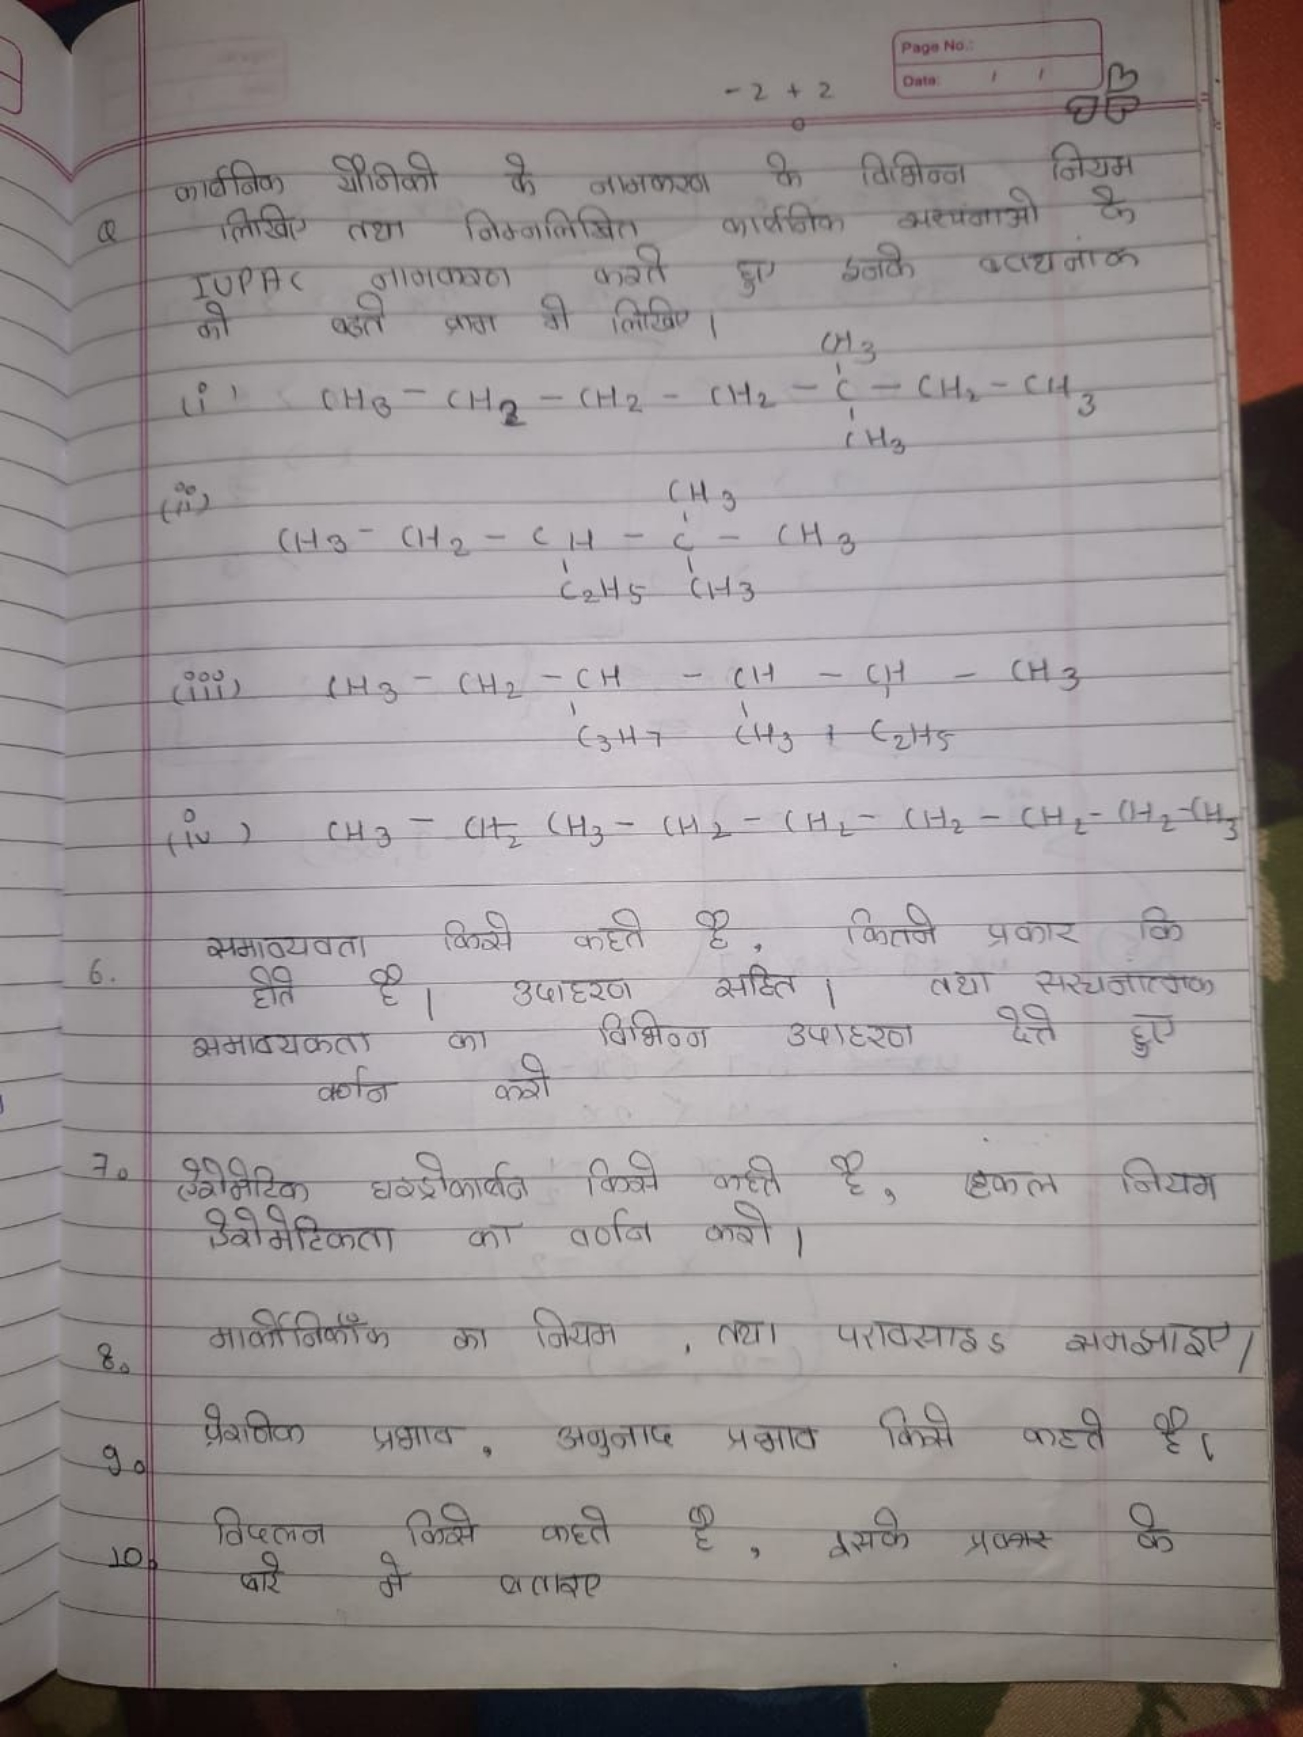 Page No.:
Date: / /
- 2 + 2
0
कार्बनिक यौगिको के नामकरण के विभिन्न नियम
Q लिखिए तथा निम्नलिखित कार्बनिक सरचनाओ के
IUPAC नामकरण करते हुए इनके क्वथनांक
को बढते क्राम मे लिखिए।
CH3
(i) CH3 - CH2 - CH2 - CH2 - C - CH2 - CH3
CH3
(ii) CH3
CH3 - CH2 - CH - C - CH3
C2H5 CH3
(iii) CH3 - CH2 - CH - CH - CH - CH3
C3H7 CH3 C2H5
(iv) CH3 - CH2 CH3 - CH2 - CH2 - CH2 - CH2 - CH2 - CH3
समाव्यवता किसे कहते है, कितने प्रकार कि
6. होते है। उदाहरण सहित। तथा सरचनात्मक
समावयकता का विभिन्न उदाहरण देते हुए
वर्णन करो
7. ऐरोमेटिक हाइड्रोकार्बन किसे कहते है, हकल नियम
ऐरोमेटिकता का वर्णन करो।
8. मार्कोनिकॉफ का नियम, तथा पराक्साइड समझाइए।
9. प्रेरानिक प्रभाव, अनुनाद प्रभाव किसे कहते है।
10. विदलन किसे कहते है, इसके प्रकार के
बारे मे बताइए